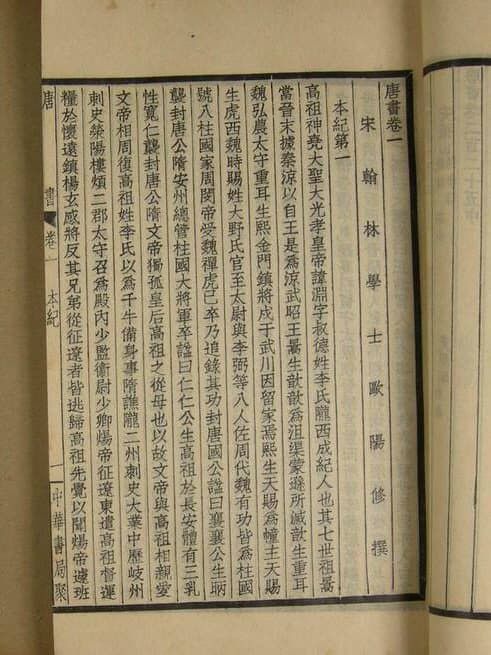 唐書卷一
宋翰林學士歐陽修撰
本紀第一
高祖神堯大聖大光孝皇帝諱淵字叔德姓李氏隴西成紀人也其七世祖暠
當晉末據秦涼以自王是爲涼武昭王暠生歆歆爲沮渠蒙遜所滅歆生重耳
魏弘農太守重耳生熙金門鎮將戍于武川因留家焉熙生天賜爲幢主天賜
生虎西魏時賜姓大野氏官至太尉與李弼等八人佐周代魏有功皆爲柱國
號八柱國家周閔帝受魏禪虎已卒乃追錄其功封唐國公諡曰襄襄公生昞
襲封唐公隋安州總管柱國大將軍卒諡曰仁仁公生高祖於長安體有三乳
性寬仁襲封唐公隋文帝獨孤皇后高祖之從母也以故文帝與高祖相親愛
文帝相周復高祖姓李氏以爲千牛備身事隋譙隴二州刺史大業中歷岐州
刺史滎陽樓煩二郡太守召爲殿內少監衞尉少卿煬帝征遼東遣高祖督運
糧於懷遠鎮楊玄感將反其兄弟從征遼者皆逃歸高祖先覺以聞煬帝遽班
唐書 卷一 本紀 一 中華書局聚